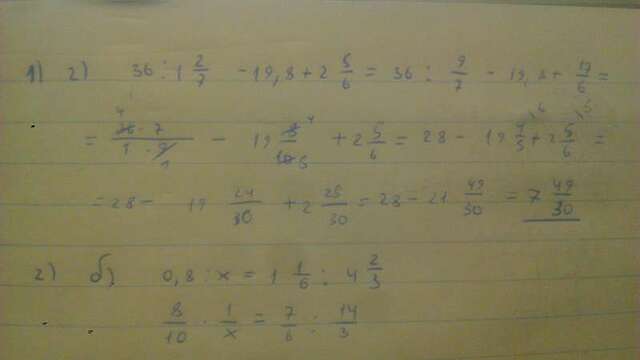 1) 2) 36 : 1 2/7 - 19,8 + 2 5/6 = 36 : 9/7 - 19,8 + 17/6 =
= 36 · 7 / 1 · 9 - 19 8/10 + 2 5/6 = 28 - 19 4/5 + 2 5/6 =
= 28 - 19 24/30 + 2 25/30 = 28 - 21 49/30 = 7 49/30
2) б) 0,8 : x = 1 1/6 : 4 2/3
8/10 · 1/x = 7/6 : 14/3